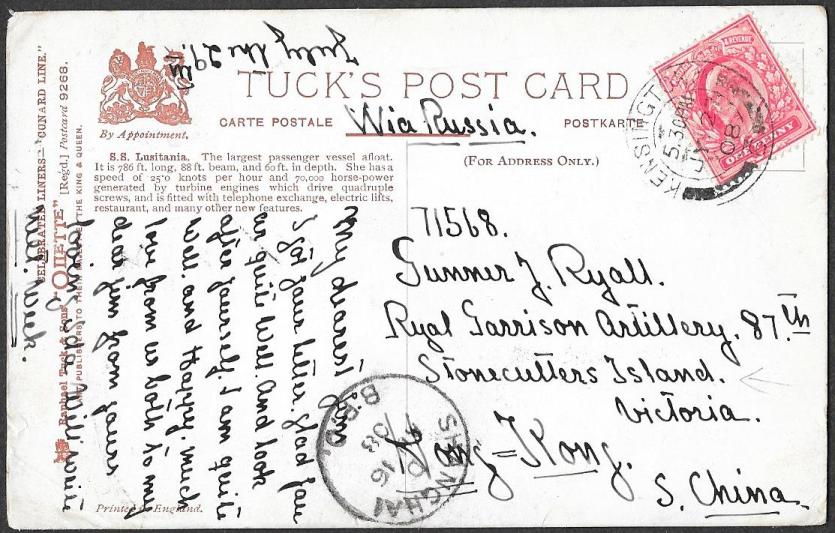 TUCK'S POST CARD
By Appointment.
CARTE POSTALE
POSTKARTE
Wia Russia.
(FOR ADDRESS ONLY.)
S.S. Lusitania. The largest passenger vessel afloat.
It is 786 ft. long, 88 ft. beam, and 60 ft. in depth. She has a
speed of 25·0 knots per hour and 70,000 horse-power
generated by turbine engines which drive quadruple
screws, and is fitted with telephone exchange, electric lifts,
restaurant, and many other new features.
CELEBRATED LINERS—"CUNARD LINE."
"OILETTE" [Regd.] Postcard 9268.
Raphael Tuck & Sons'
ART PUBLISHERS TO THEIR MAJESTIES THE KING & QUEEN.
Printed in England.
July the 29th
My dearest Jim
I got your letter. glad you
are quite Well. And look
after yourself. I am quite
Well. and Happy. much
love from us both to my
dear Jim from yours
loving Ada Will write
next week.
71568.
Gunner J. Ryall.
Ryal Garrison Artillery. 87.th
Stonecutters Island.
Victoria.
Hong=Kong.
S. China.
KENSINGTON
5.30PM
08
& REVENUE
ONE PENNY
SHANGHAI
16
08
B.P.O.